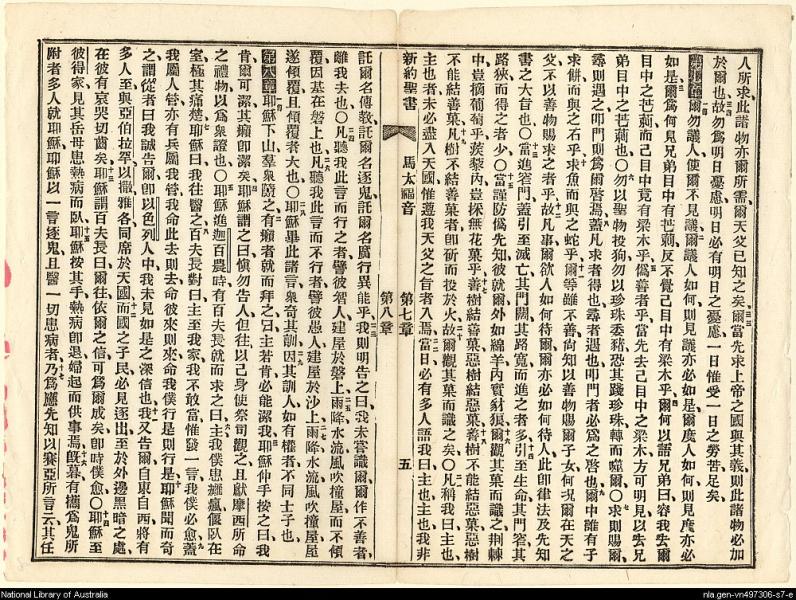 人所求此諸物亦爾所需爾天父已知之矣爾當先求上帝之國與其義則此諸物必加
於爾也故勿爲明日憂慮明日必有明日之憂慮一日惟受一日之勞苦足矣
第七章爾勿議人使爾不見議爾議人如何則見議亦必如是爾度人如何則見度亦必
如是爾爲何見兄弟目中有芒莿反不覺己目中有梁木乎爾何以語兄弟曰容我去爾
目中之芒莿而己目中竟有梁木乎僞善者乎當先去己目中之梁木方可明見以去兄
弟目中之芒莿也○勿以聖物投狗勿以珍珠委豬恐其踐珍珠轉而噬爾○求則賜爾
尋則遇之叩門則爲爾啓焉蓋凡求者得也尋者遇也叩門者必爲之啓也爾中誰有子
求餅而與之石乎求魚而與之蛇乎爾等雖不善尙知以善物賜爾子女何況爾在天之
父不以善物賜求之者乎故凡事爾欲人如何待爾爾亦必如何待人此卽律法及先知
書之大旨也○當進窄門蓋引至滅亡其門闊其路寬而進之者多引至生命其門窄其
路狹而得之者少○當謹防僞先知彼就爾外如綿羊內實豺狼爾觀其菓而識之荆棘
中豈摘葡萄乎蒺藜內豈採無花菓乎善樹結善菓惡樹結惡菓善樹不能結惡菓惡樹
不能結善菓凡樹不結善菓者卽斫而投於火故爾觀其菓而識之矣○凡稱我曰主也
主也者未必盡入天國惟遵我天父之旨者入焉當日必有多人語我曰主也主也我非
新約聖書 馬太福音 第七章 第八章 五
託爾名傳敎託爾名逐鬼託爾名廣行異能乎我則明告之曰我未嘗識爾爾作不善者
離我去也○凡聽我此言而行之者譬彼智人建屋於磐上雨降水流風吹撞屋而不傾
覆因基在磐上也凡聽我此言而不行者譬彼愚人建屋於沙上雨降水流風吹撞屋屋
遂傾覆且傾覆者大也○耶穌畢此諸言衆奇其訓因其訓人如有權者不同士子也
第八章耶穌下山羣衆隨之有癩者就而拜之曰主若肯必能潔我耶穌伸手按之曰我
肯爾可潔其癩卽潔矣耶穌謂之曰愼勿告人但往以己身使祭司觀之且獻摩西所命
之禮物以爲衆證也○耶穌進迦百農時有百夫長就而求之曰主我僕患癱瘋偃臥在
室極其痛楚耶穌曰我往醫之百夫長對曰主至我家我不敢當惟發一言我僕必愈蓋
我屬人管亦有兵屬我管我命此去則去命彼來則來命我僕行是則行是耶穌聞而奇
之謂從者曰我誠告爾卽以色列人中我未見如是之深信也我又告爾自東自西將有
多人至與亞伯拉罕以撒雅各同席於天國而國之子民必見逐出至於外邊黑暗之處
在彼有哀哭切齒矣耶穌謂百夫長曰爾往依爾之信可爲爾成矣卽時僕愈○耶穌至
彼得家見其岳母患熱病而臥耶穌按其手熱病卽退婦起而供事焉旣暮有攜爲鬼所
附者多人就耶穌耶穌以一言逐鬼且醫一切患病者乃爲應先知以賽亞所言云其任
National Library of Australia
nla.gen-vn497306-s7-e